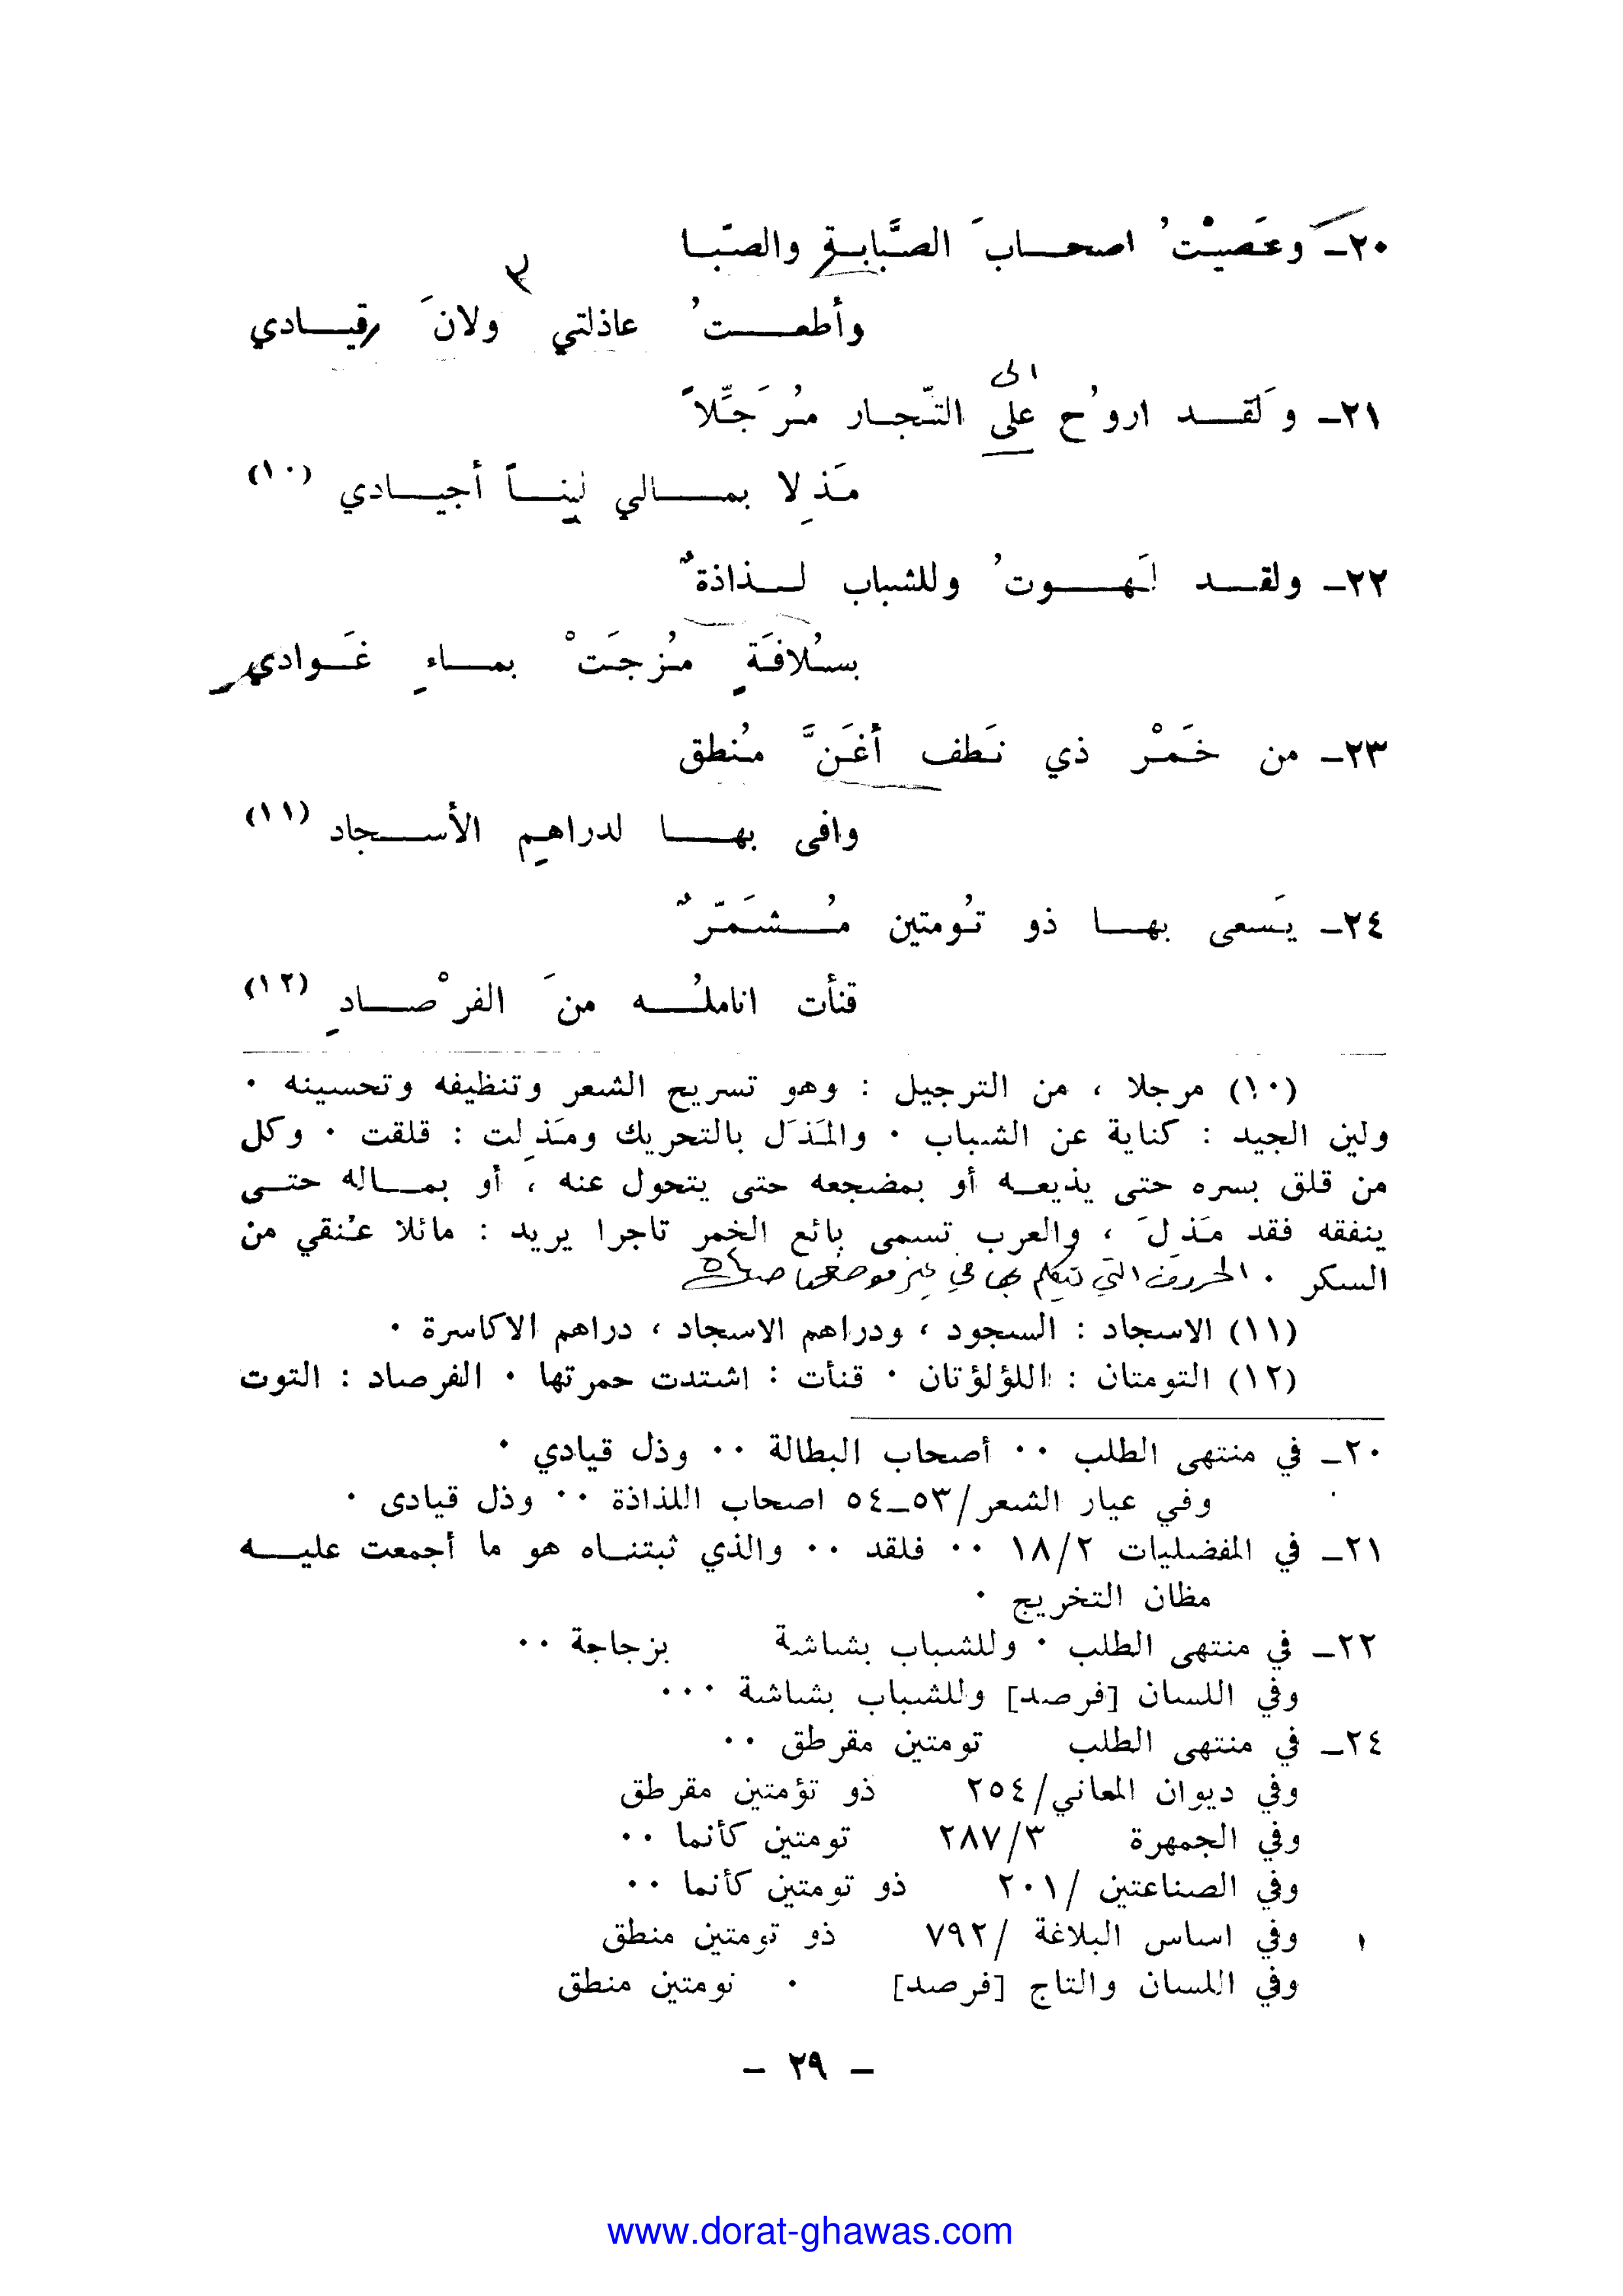 ٢٠ـ وعَصيْتُ اصحـــابَ الصَّبابــةِ والصّبــا
٣
وأطعـــــتُ عاذلتي ولانَ قيـــادي
الى
٢١ـ وَلقـــد اروُح على التّجــار مُرَجَّلاً
مَذِلا بمـــــالي ليّنـــاً أجيـــادي (١٠)
٢٢ـ ولقـــد لَهـــــوتُ وللشباب لـــذاذةٌ
بسُلافَةٍ مُزجَتْ بمـــاءِ غَــوادي
٢٣ـ من خَمْر ذي نَطف أغَنَّ مُنطق
وافى بهـــــا لدراهمِ الأســـجاد (١١)
٢٤ـ يَسعى بهـــا ذو تُومتين مُـــشمَّرٌ
قنأت اناملُـــه منَ الفرْصـــادِ (١٢)
(١٠) مرجلا ، من الترجيل : وهو تسريح الشعر وتنظيفه وتحسينه .
ولين الجيد : كناية عن الشباب . والمَذَل بالتحريك ومَذِلت : قلقت . وكل
من قلق بسره حتى يذيعــه أو بمضجعه حتى يتحول عنه ، أو بمـــاله حتــى
ينفقه فقد مَذِلَ ، والعرب تسمى بائع الخمر تاجرا يريد : مائلا عُنقي من
السكر . الحروف التي تتكلم بها في غير موضعها
(١١) الاسجاد : السجود ، ودراهم الاسجاد ، دراهم الاكاسرة .
(١٢) التومتان : اللؤلؤتان . قنأت : اشتدت حمرتها . الفرصاد : التوت
٢٠ـ في منتهى الطلب .. أصحاب البطالة .. وذل قيادي .
وفي عيار الشعر/٥٣ـ٥٤ اصحاب اللذاذة .. وذل قيادى .
٢١ـ في المفضليات ١٨/٢ .. فلقد .. والذي ثبتنـاه هو ما أجمعت عليـــه
مظان التخريج .
٢٢ـ في منتهى الطلب . وللشباب بشاشة بزجاجة ..
وفي اللسان [فرصد] وللشباب بشاشة ...
٢٤ـ في منتهى الطلب تومتين مقرطق ..
وفي ديوان المعاني/٢٥٤ ذو تؤمتين مقرطق
وفي الجمهرة ٢٨٧/٣ تومتين كأنما ..
وفي الصناعتين /٢٠١ ذو تومتين كأنما ..
وفي اساس البلاغة /٧٩٢ ذو تومتين منطق
وفي اللسان والتاج [فرصد] . نومتين منطق
ـ ٢٩ ـ
www.dorat-ghawas.com